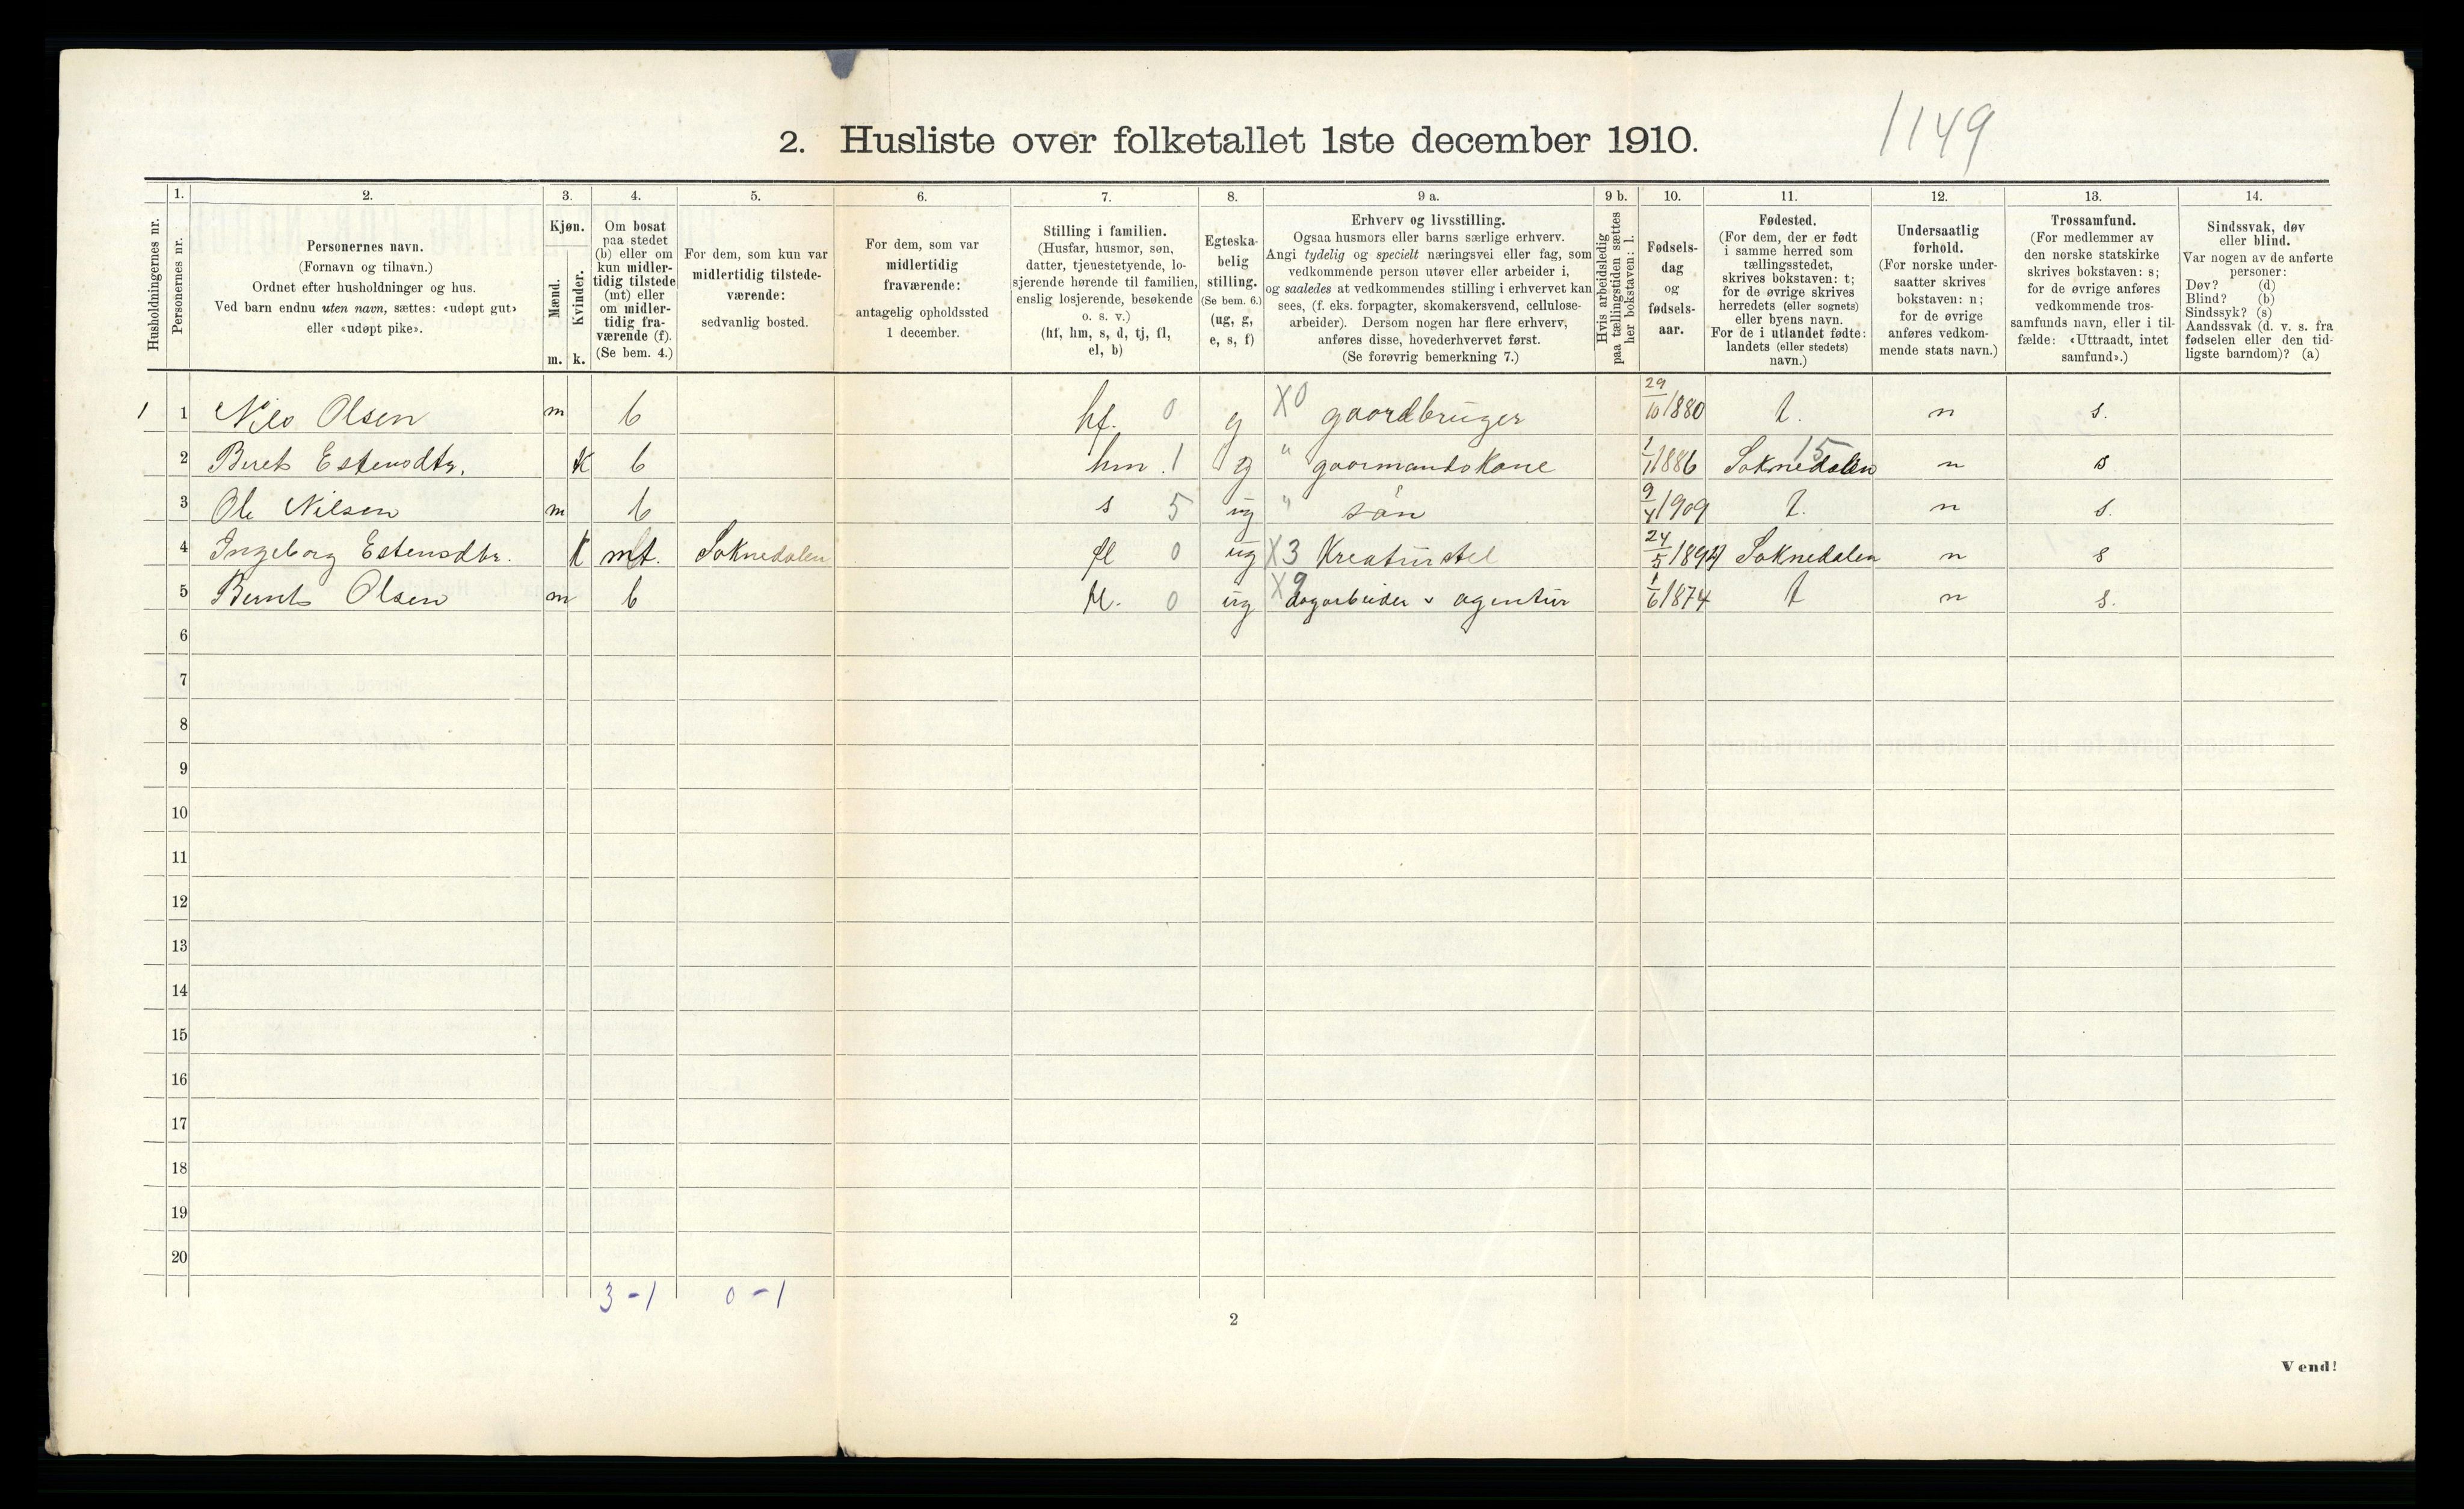 1149
2. Husliste over folketallet 1ste december 1910.
Husholdningernes nr.
1.
Personernes nr.
2.
Personernes navn.
(Fornavn og tilnavn.)
Ordnet efter husholdninger og hus.
Ved barn endnu uten navn, sættes: «udøpt gut»
eller «udøpt pike».
3.
Kjøn.
Mænd.
m.
Kvinder.
k.
4.
Om bosat
paa stedet
(b) eller om
kun midler-
tidig tilstede
(mt) eller
om midler-
tidig fra-
værende (f).
(Se bem. 4.)
5.
For dem, som kun var
midlertidig tilstede-
værende:
sedvanlig bosted.
6.
For dem, som var
midlertidig
fraværende:
antagelig opholdssted
1 december.
7.
Stilling i familien.
(Husfar, husmor, søn,
datter, tjenestetyende, lo-
sjerende hørende til familien,
enslig losjerende, besøkende
o. s. v.)
(hf, hm, s, d, tj, fl,
el, b)
8.
Egteska-
belig
stilling.
(Se bem. 6.)
(ug, g,
e, s, f)
9 a.
Erhverv og livsstilling.
Ogsaa husmors eller barns særlige erhverv.
Angi tydelig og specielt næringsvei eller fag, som
vedkommende person utøver eller arbeider i,
og saaledes at vedkommendes stilling i erhvervet kan
sees, (f. eks. forpagter, skomakersvend, cellulose-
arbeider). Dersom nogen har flere erhverv,
anføres disse, hovederhvervet først.
(Se forøvrig bemerkning 7.)
9 b.
Hvis arbeidsledig
paa tællingstiden sættes
her bokstaven: l.
10.
Fødsels-
dag
og
fødsels-
aar.
11.
Fødested.
(For dem, der er født
i samme herred som
tællingsstedet,
skrives bokstaven: t;
for de øvrige skrives
herredets (eller sognets)
eller byens navn.
For de i utlandet fødte:
landets (eller stedets)
navn.)
12.
Undersaatlig
forhold.
(For norske under-
saatter skrives
bokstaven: n;
for de øvrige
anføres vedkom-
mende stats navn.)
13.
Trossamfund.
(For medlemmer av
den norske statskirke
skrives bokstaven: s;
for de øvrige anføres
vedkommende tros-
samfunds navn, eller i til-
fælde: «Uttraadt, intet
samfund».)
14.
Sindssvak, døv
eller blind.
Var nogen av de anførte
personer:
Døv? (d)
Blind? (b)
Sindssyk? (s)
Aandssvak (d. v. s. fra
fødselen eller den tid-
ligste barndom)? (a)
1 1 Nils Olsen m b hf. 0 g X0 gaardbruger 29/10 1880 t. n s.
2 Berit Estensdtr. K b hm. 1 g " gaarmandskone 1/1 1886 Soknedalen 15 n s
3 Ole Nilsen m b s 5 ug " søn 9/4 1909 t. n s.
4 Ingeborg Estensdtr. K mt. Soknedalen fl 0 ug X3 Kreaturstel 24/5 1894 Soknedalen n s
5 Bernt Olsen m b fl. 0 ug X9 dagarbeider & agentur 1/6 1874 t n s.
6
7
8
9
10
11
12
13
14
15
16
17
18
19
20
3 - 1 0 - 1
2
Vend!